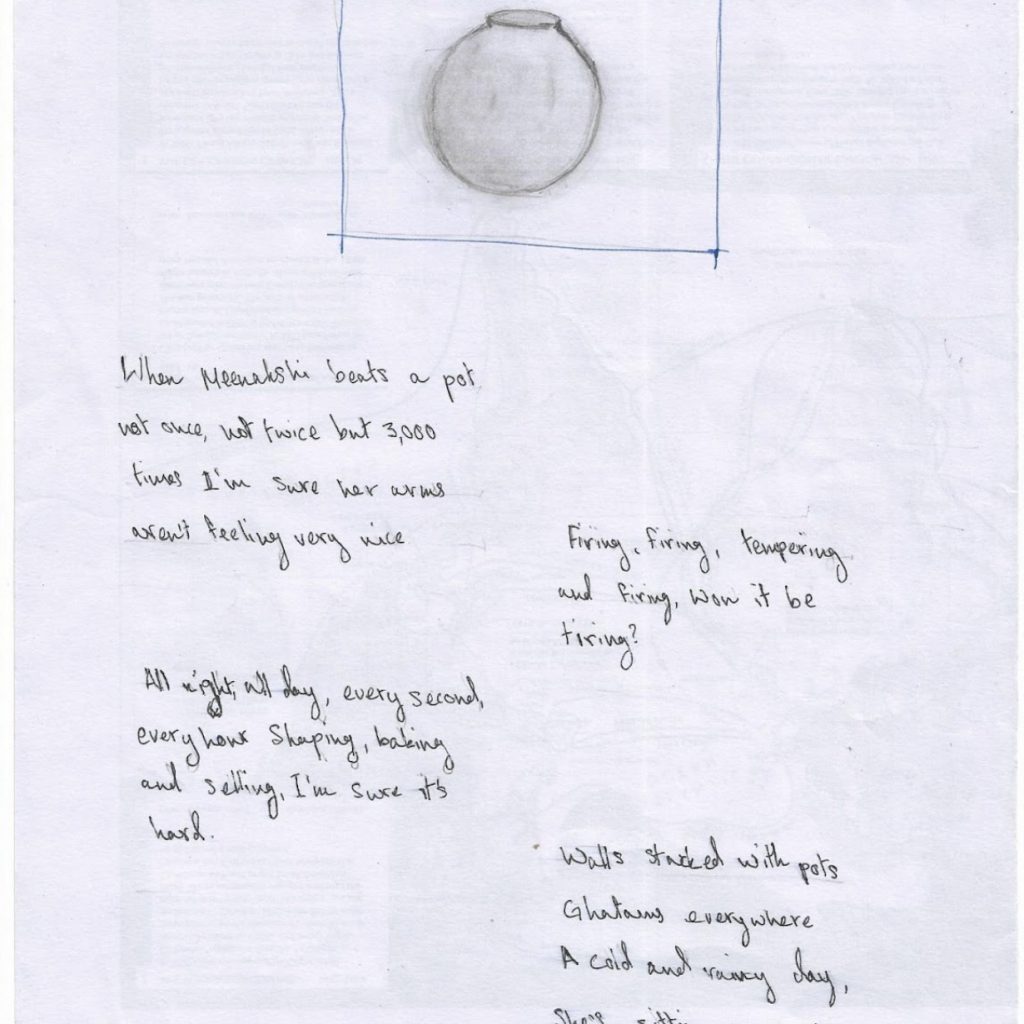 When Meenakshi beats a pot
not once, not twice but 3,000
times I'm sure her arms
aren't feeling very nice
Firing, firing, tempering
and firing, won it be
tiring?
All night, all day, every second,
every hour Shaping, baking
and selling, I'm sure it's
hard.
Walls stacked with pots
Ghatams everywhere
A cold and rainy day,
She's